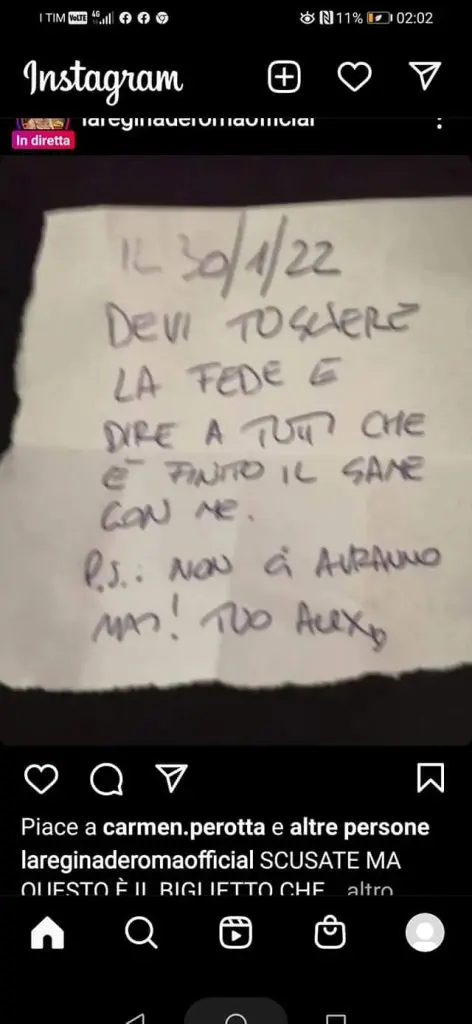 I TIM VoLTE 4G 11% 02:02
Instagram
lareginaderomaofficial
In diretta
IL 30/1/22
DEVI TOGLIERE
LA FEDE E
DIRE A TUTTI CHE
È FINITO IL GAME
CON ME.
P.S.: NON CI AVRANNO
MAI! TUO ALEX
Piace a carmen.perotta e altre persone
lareginaderomaofficial SCUSATE MA
QUESTO È IL BIGLIETTO CHE... altro